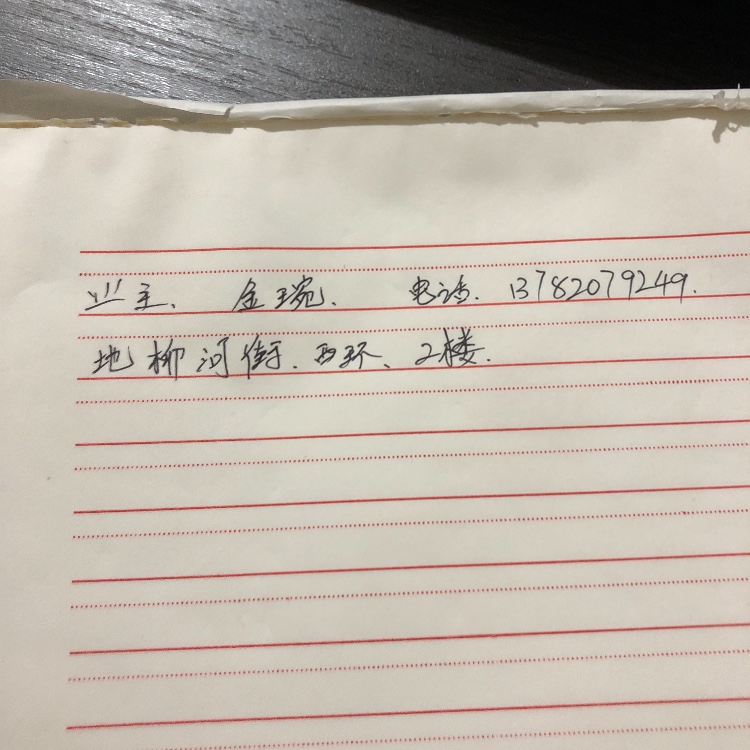 业主、 金琬. 电话. 13782079249.
地柳河街. 西环、2楼.